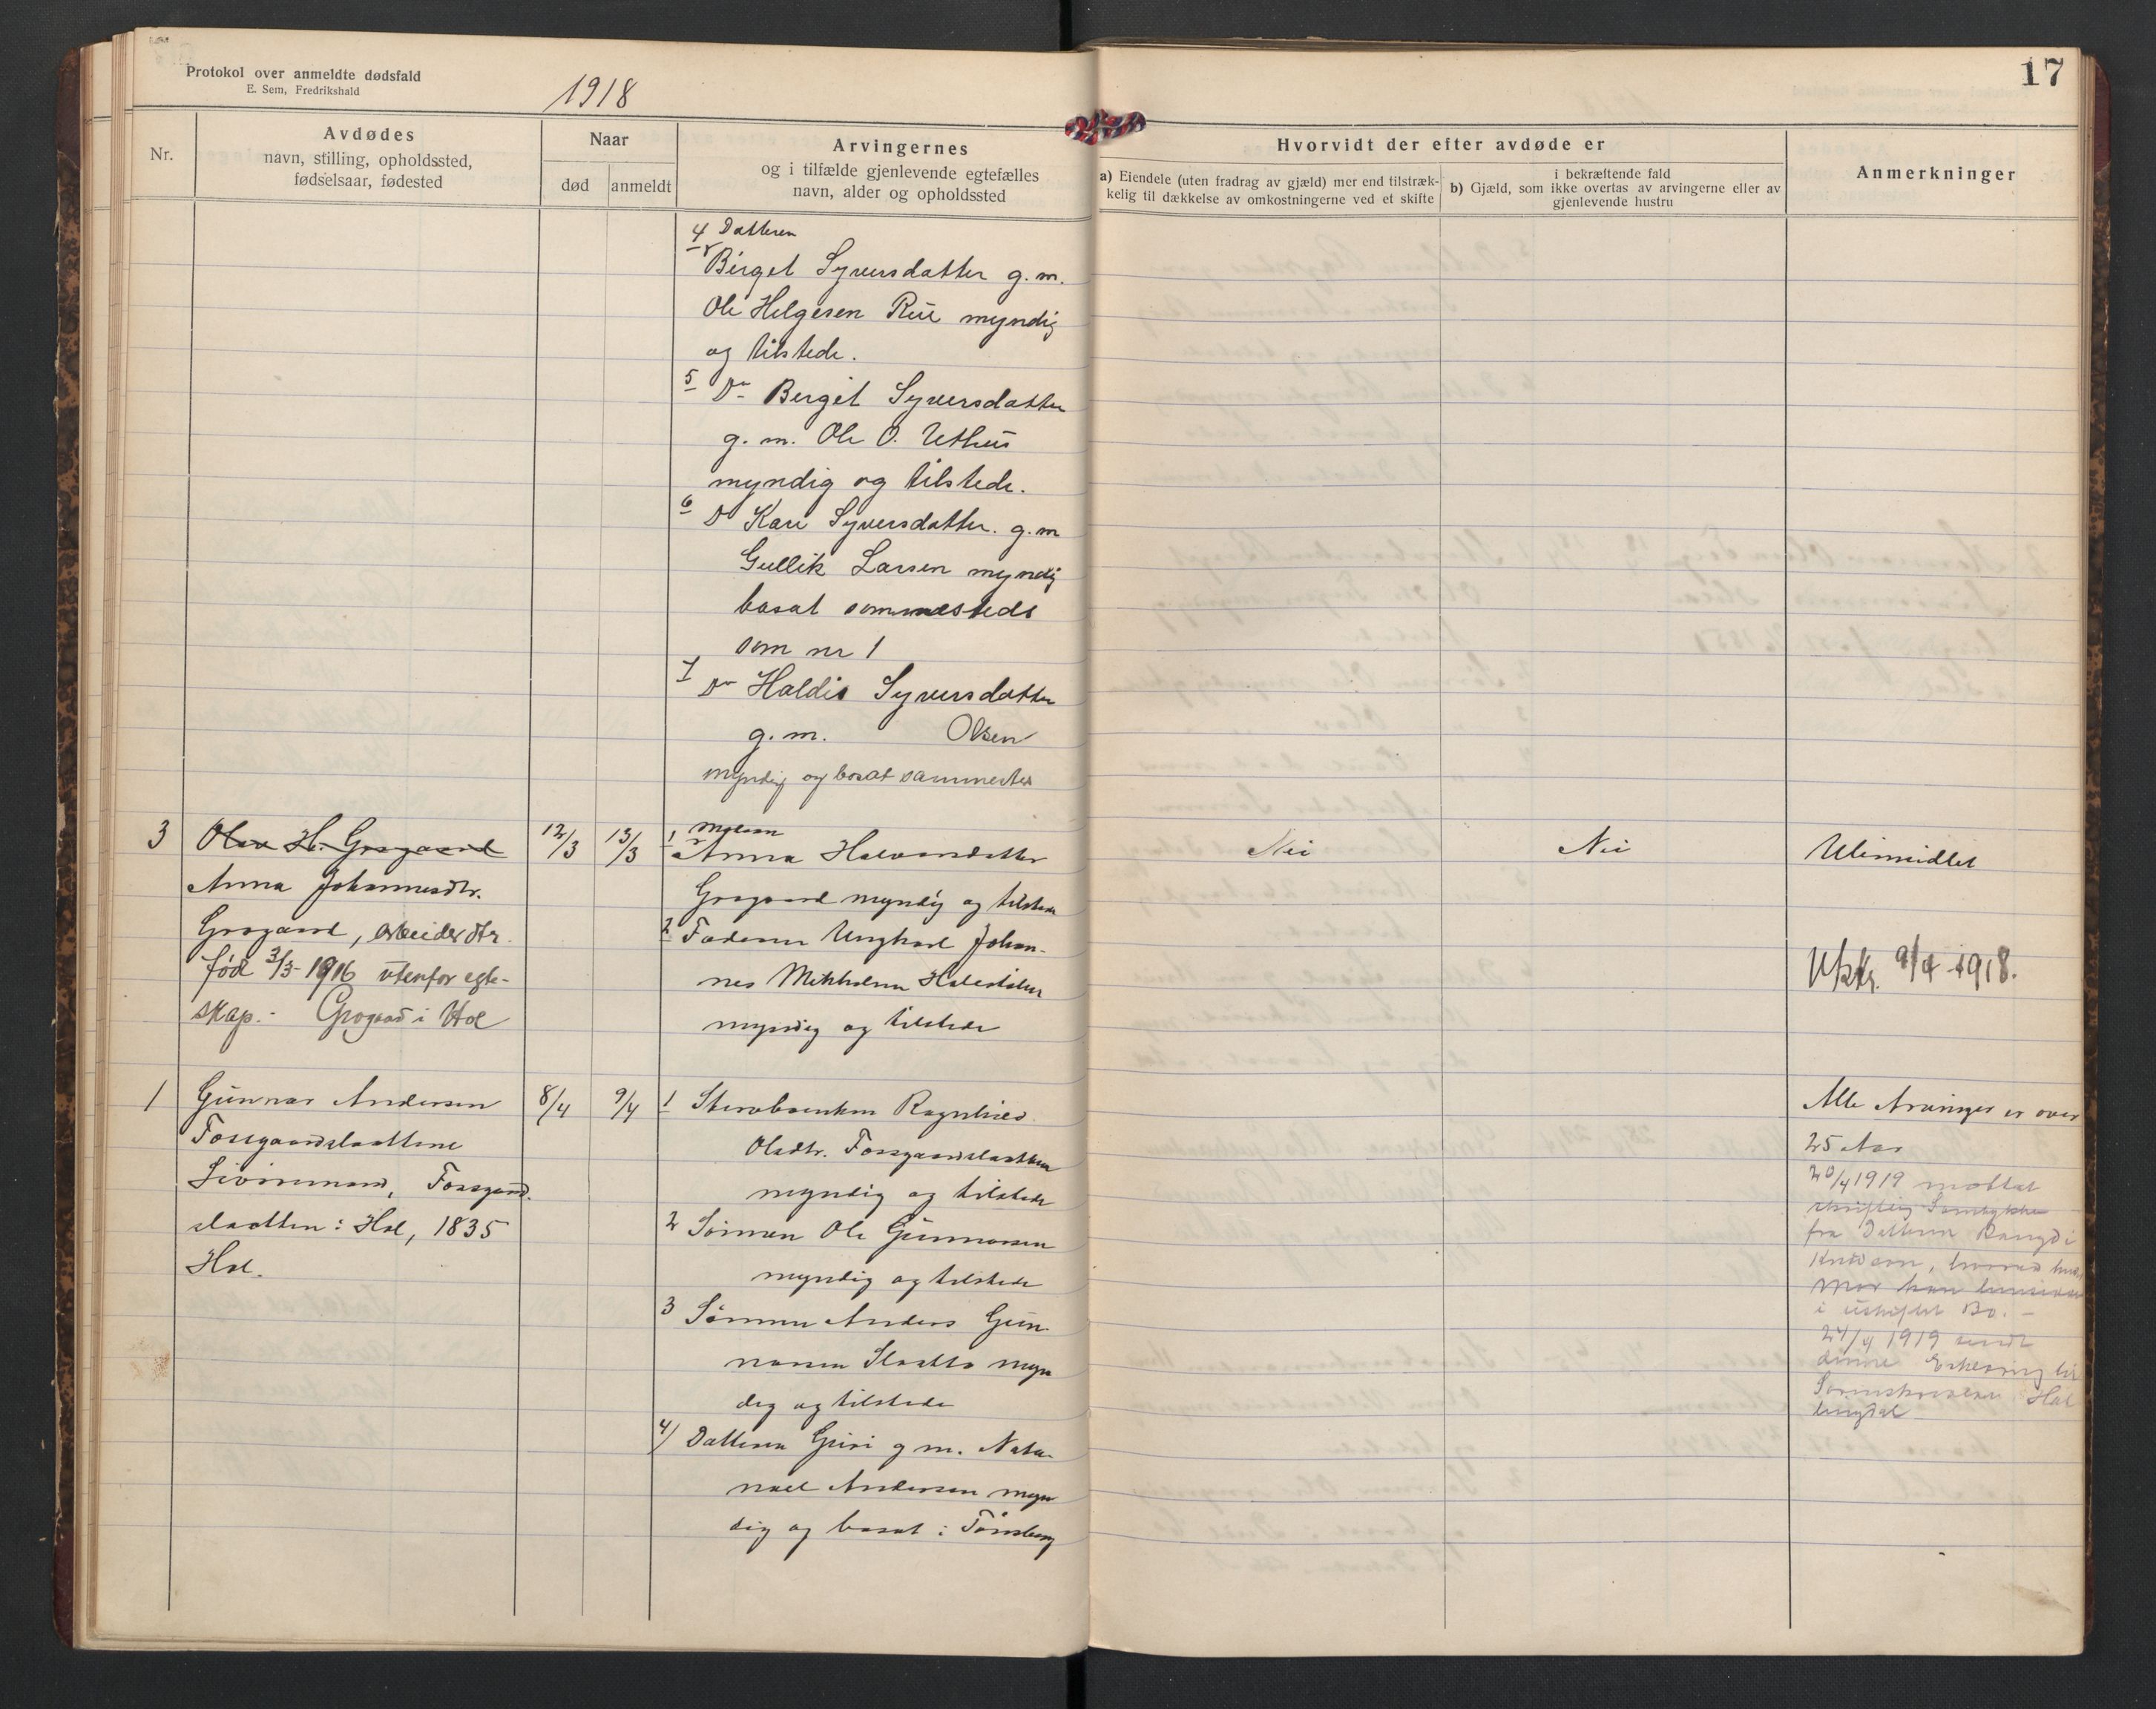 Protokol over anmeldte dødsfald
E. Sem, Fredrikshald
1918
17
Nr.
Avdødes
navn, stilling, opholdssted,
fødselsaar, fødested
Naar
død
anmeldt
Arvingernes
og i tilfælde gjenlevende egtefælles
navn, alder og opholdssted
Hvorvidt der efter avdøde er
a) Eiendele (uten fradrag av gjæld) mer end tilstræk-
kelig til dækkelse av omkostningerne ved et skifte
i bekræftende fald
b) Gjæld, som ikke overtas av arvingerne eller av
gjenlevende hustru
Anmerkninger
4 Datteren
Birget Syversdatter g. m.
Ole Helgesen Rue myndig
og tilstede.
5 Dr Bergit Syversdatter
g. m. Ole O. Uthus
myndig og tilstede.
6 D Kari Syversdatter. g. m
Gullik Larsen myndig
bosat sammesteds
som nr 1
7 Dr Haldis Syversdatter
g. m. Olsen
myndig og bosat sammesteds
3
Olav H. Grogaard
Anna Johannesdtr.
Grogaard, arbeiderdtr.
født 3/3-1916 utenfor egte-
skap.- Grogaard i Hol
12/3
13/3
1 Moren
Anna Halvorsdatter
Grogaard myndig og tilstede
2 Faderen Ungkarl Johan-
nes Mikkelsen
myndig og tilstede
Nei
Nei
Ubemidlet
Utskr. 9/4 1918.
1
Gunnar Andersen
Fossgaardslaatten
Livøremand, Fossgaard-
slaatten i Hol, 1835
Hol.
8/4
9/4
1 Stervboenken Ragnhild
Olsdtr. Fossgaardslaatten
myndig og tilstede
2 Sønnen Ole Gunnarsen
myndig og tilstede
3 Sønnen Anders Gun-
narsen Slaatto myn
dig og tilstede
4) Datteren Guri g m. Nata-
nael Andersen myn
dig og bosat i Tønsberg
Alle Arvinger er over
25 Aar
20/4 1919 mottat
skriftlig Samtykke
fra Datteren
Knudsen, hvorved hendes
Mor kan hensidde
i uskiftet Bo. -
24/4 1919 sendt
denne Erklæring til
Sorenskriveren i Hal
lingdal